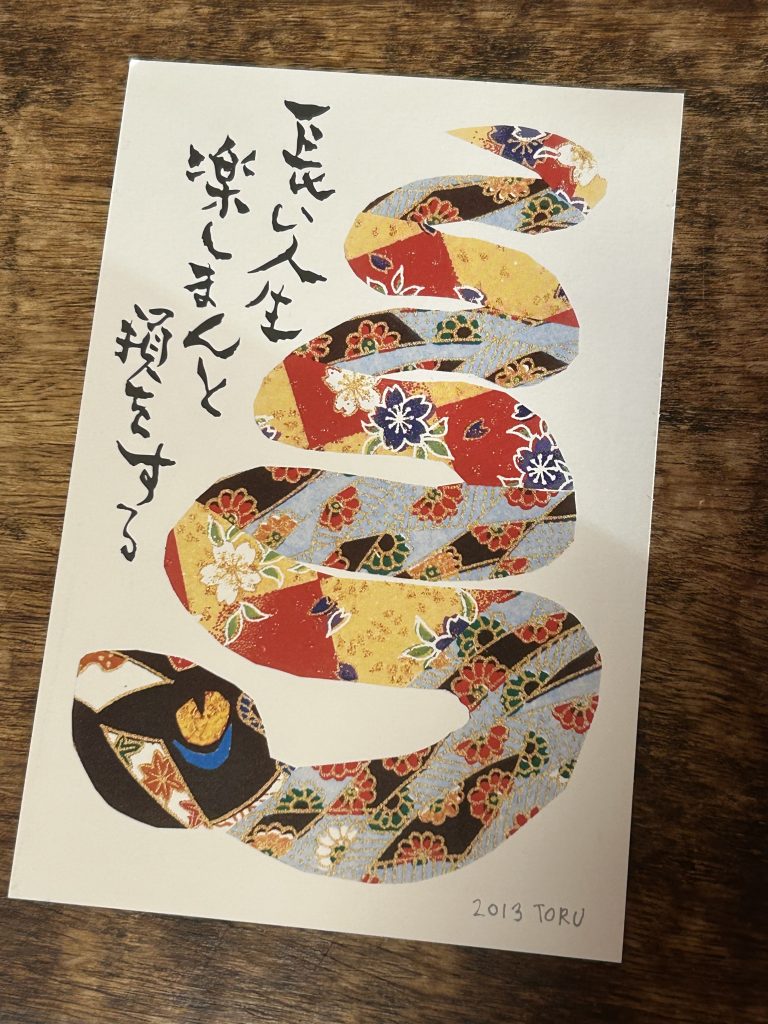 長い人生
楽しまんと
損をする
2013 TORU